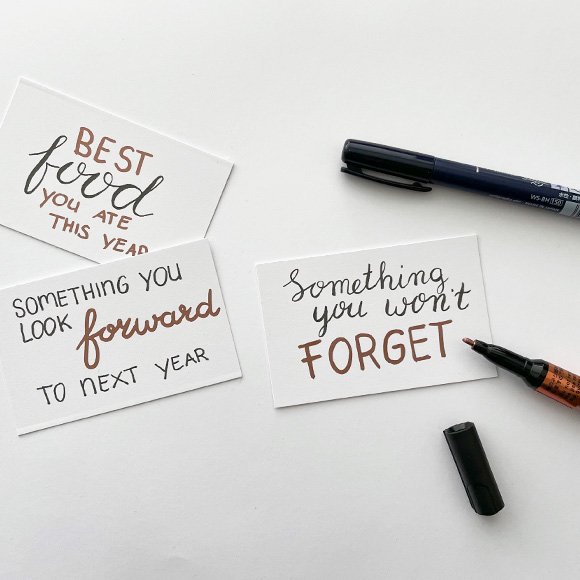 BEST
food
YOU ATE
THIS YEAR
SOMETHING YOU
LOOK forward
TO NEXT YEAR
Something
you won't
FORGET
WS-BH